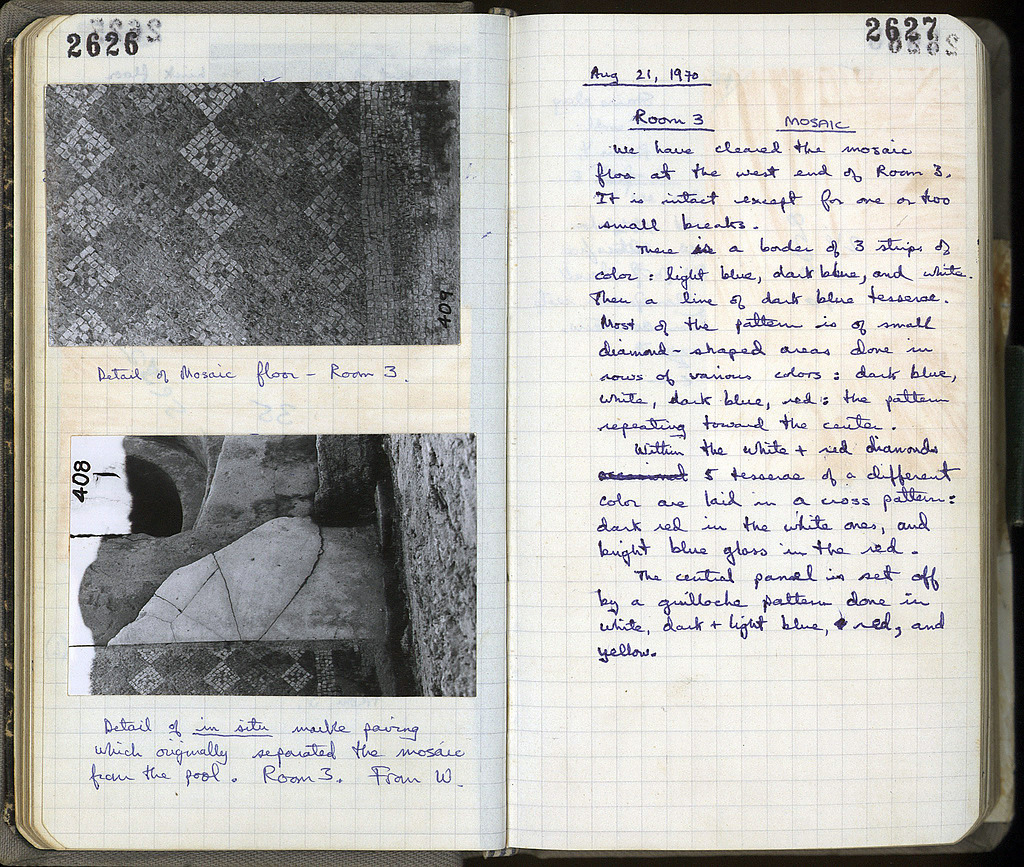 2626
409
Detail of Mosaic floor - Room 3.
408
Detail of in situ marble paving
which originally separated the mosaic
from the pool. Room 3. From W.
2627
Aug 21, 1970
Room 3 MOSAIC
We have cleared the mosaic
floor at the west end of Room 3.
It is intact except for one or two
small breaks.
There is a border of 3 strips of
color : light blue, dark blue, and white.
Then a line of dark blue tesserae.
Most of the pattern is of small
diamond-shaped areas done in
rows of various colors : dark blue,
white, dark blue, red : the pattern
repeating toward the center.
Within the white + red diamonds
5 tesserae of a different
color are laid in a cross pattern:
dark red in the white ones, and
bright blue glass in the red.
The central panel is set off
by a guilloche pattern done in
white, dark + light blue, red, and
yellow.